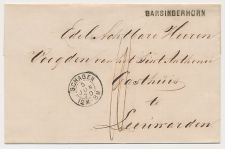 BARSINGERHORN
Edel Achtbare Heeren
Voogden van het Sint Anthonie
Gasthuis
te
Leeuwarden
SCHAGEN